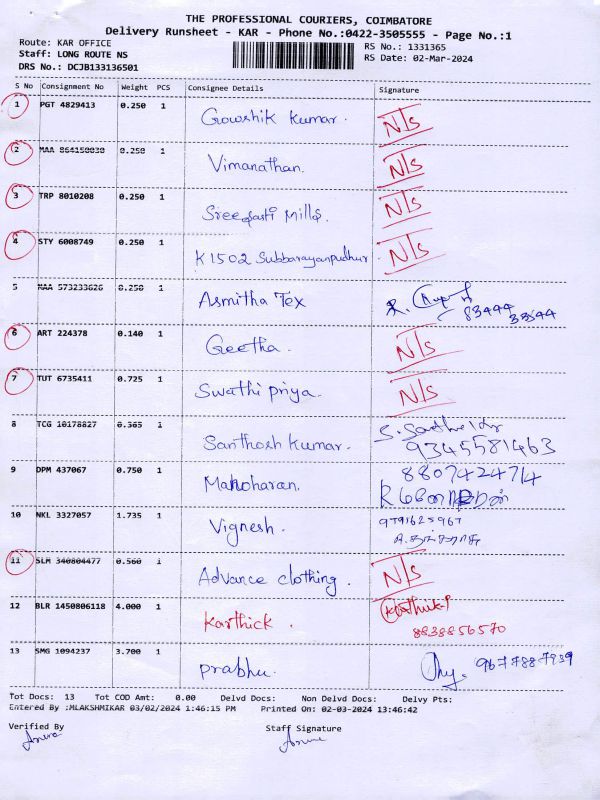 THE PROFESSIONAL COURIERS, COIMBATORE
Delivery Runsheet - KAR - Phone No.:0422-3505555 - Page No.:1
Route: KAR OFFICE
Staff: LONG ROUTE NS
DRS No.: DCJB133136501
RS No.: 1331365
RS Date: 02-Mar-2024
S No Consignment No Weight PCS Consignee Details Signature
1 PGT 4829413 0.250 1 Gowshik Kumar. N/s
2 MAA 864150030 0.250 1 Vimanathan. N/s
3 TRP 8010208 0.250 1 Mills. N/s
4 STY 6008749 0.250 1 K 1502 Subbarayanpudhur N/s
5 MAA 573233626 0.250 1 Asmitha Tex 83444 33544
6 ART 224378 0.140 1 Geetha. N/s
7 TUT 6735411 0.725 1 Swathi priya. N/s
8 TCG 10178827 0.365 1 Santhosh kumar. 9345581463
9 DPM 437067 0.750 1 Manoharan. 8807424714
10 NKL 3327057 1.735 1 Vignesh. 9791625967
11 SLM 340804477 0.560 1 Advance clothing. N/s
12 BLR 1450806118 4.000 1 Karthick. Karthik.P
8838856570
13 SMG 1094237 3.700 1 prabhu. 9677887939
Tot Docs: 13 Tot COD Amt: 0.00 Delvd Docs: Non Delvd Docs: Delvy Pts:
Entered By :MLAKSHMIKAR 03/02/2024 1:46:15 PM Printed On: 02-03-2024 13:46:42
Verified By Staff Signature